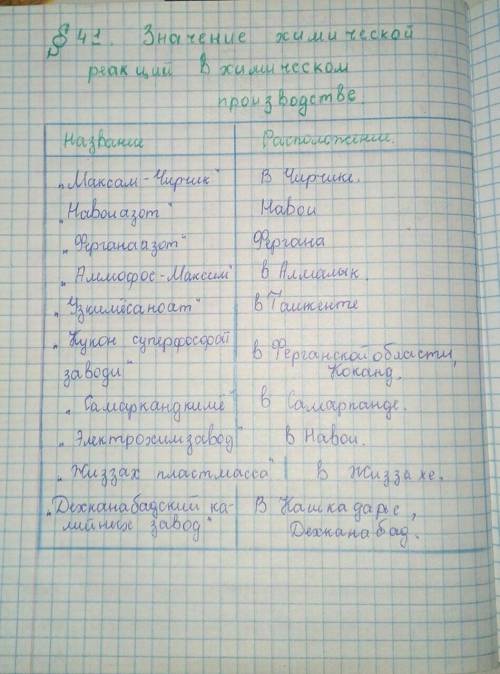 § 41. Значение химической
реакций в химическом
производстве.
Название Расположение.
„Максам-Чирчик" В Чирчике.
„Навоиазот" Навои
„Ферганаазот" Фергана
„Аммофос-Максам" в Алмалык.
„Узкимёсаноат" в Ташкенте
„Кукон суперфосфат
заводи" в Ферганской области,
Коканд.
„Самаркандкимё" в Самарканде.
„Электрохимзавод" в Навои.
„Жиззах пластмасса" в Жиззахе.
„Дехканабадский ка- В Кашкадарье,
лийных завод" Дехканабад.